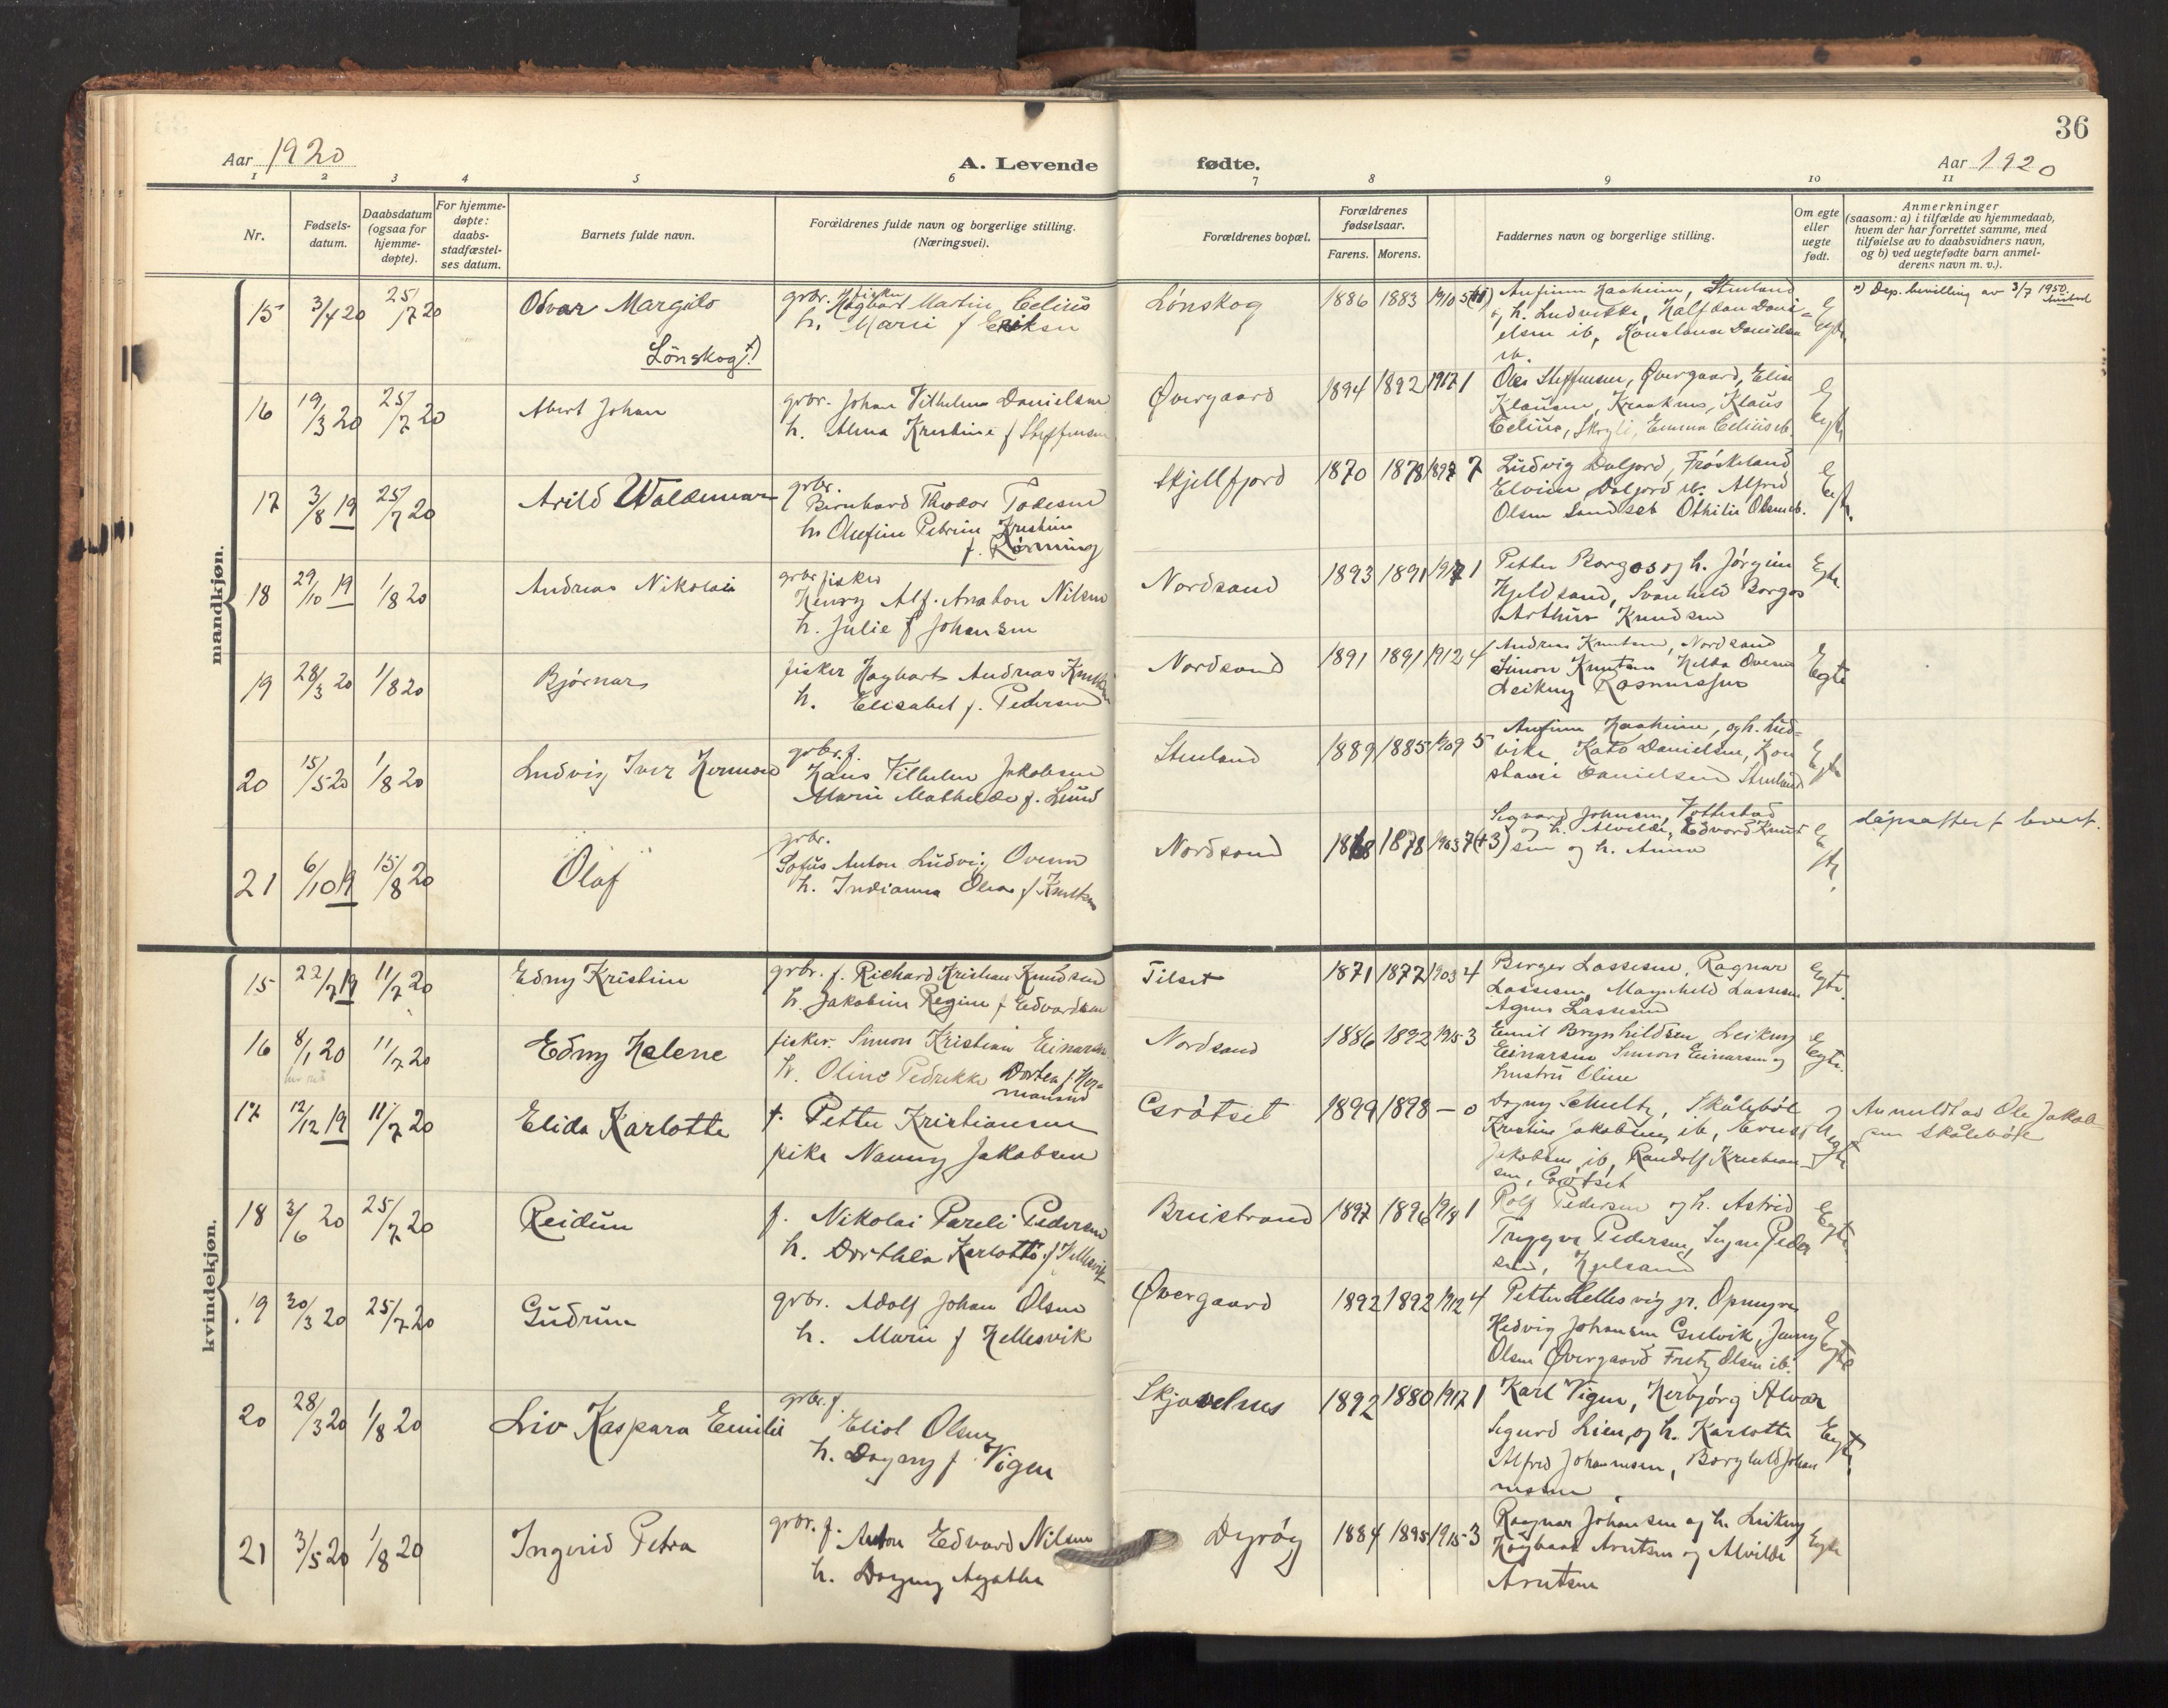 36
Aar 1920
A. Levende
fødte.
Aar 1920
1 2 3 4 5 6 7 8 9 10 11
Nr.
Fødsels-
datum.
Daabsdatum
(ogsaa for
hjemme-
døpte).
For hjemme-
døpte:
daabs-
stadfæstel-
ses datum.
Barnets fulde navn.
Forældrenes fulde navn og borgerlige stilling.
(Næringsvei).
Forældrenes bopæl.
Forældrenes
fødselsaar.
Farens. Morens.
Faddernes navn og borgerlige stilling.
Om egte
eller
uegte
født.
Anmerkninger
(saasom: a) i tilfælde av hjemmedaab,
hvem der har forrettet samme, med
tilføielse av to daabsvidners navn,
og b) ved uegtefødte barn anmel-
derens navn m. v.).
mandkjøn.
15 3/4 20 25/7 20 Odvar Margido
Lönskog
grbr. fisker
Hagbart Martin Celius
h. Marie f Eriksen
Lønskog 1886 1883 1910 5
Anfinn Kaaheim, Stenland
og h. Ludvikke, Halfdan Dani-
elsen ib, Konstanse Danielsen
ib.
Egte
Dep. bevilling av 3/7 1950.
16 19/3 20 25/7 20 Abert Johan
grbr. Johan Vilhelm Danielsen
h. Alma Kristine f Steffensen
Øvergaard 1894 1892 1917 1
Oles Steffensen, Øvergaard, Elise
Klausen, Kraaknes, Klaus
Celius, Skogli, Emma Celius ib.
Egte
17 3/8 19 25/7 20 Arild Waldemar
grbr.
Bernhard Theodor Tobesen
h. Olufine Petrine Kristine
f. Rørming
Skjellfjord 1870 1878 1897 7
Ludvig Daljord, Frøskeland
Elvine Daljord ib. Alfred
Olsen Sandset Othilie Olsen ib.
Egte.
18 29/10 19 1/8 20 Andreas Nikolai
grbr fisker
Henry Alf. Anaton Nilsen
h. Julie f Johansen
Nordsand 1893 1891 1917 1
Petter Borgos og h. Jørgine
Hjeldsand, Svanhild Borgos
Arthur Knudsen
Egte.
19 28/3 20 1/8 20 Bjørnar
fisker Hagbart Andreas Knutsen
h. Elisabet f. Pedersen
Nordsand 1891 1891 1912 4
Andreas Knutsen, Nordsand
Simon Knutsen Helda Ovesen
Leikny Rasmussen
Egte
20 15/5 20 1/8 20 Ludvig Iver Hermon
grbr. f.
Hans Vilhelm Jakobsen
Marie Mathilde f. Lund
Stenland 1889 1885 1909 5
Anfinn Kaaheim, og h. Lud-
vike Kato Danielsen, Kon
stanse Danielsen Stenland
Egte
21 6/10 19 15/8 20 Olaf
grbr.
Sofus Anton Ludvig Ovesen
h. Indianna Olea f Knutsen
Nordsand 1868 1878 1903 7(+3)
Sigvard Johnsen, Vottestad
og h. Alvilde, Edvard Knut
sen og h. Anna
Egt.
dåpsattest levert.
kvindekjøn.
15 22/7 19 11/7 20 Edny Kristine
grbr. f. Richard Kristian Knudsen
h. Jakobine Regine f Edvardsen
Tilset 1871 1877 1903 4
Berger Lassesen, Ragnar
Lassesen, Magnhild Lassesen
Agnes Lassesen
Egte.
16 8/1 20 11/7 20 Edny Helene
fisker. Simon Kristian Einarsen
h. Oline Pedrikke Dortea f Her-
mansen
Nordsand 1886 1892 1915 3
Emil Brynhildsen Leikny
Einarsen Simon Einarsen og
hustru Oline
Egte.
17 12/12 19 11/7 20 Elida Karlotte
f. Petter Kristiansen
pike Nanny Jakobsen
Grøtset 1899 1898 – 0
Dagny Schultz, Skålebøl
Kristine Jakobsen, ib, Ernst
Jakobsen, ib, Randolf Kristian-
sen, Grøtset
Uegte
Anmeldt av Ole Jakob-
sen Skålebøl
18 3/6 20 25/7 20 Reidun
f. Nikolai Pareli Pedersen
h. Dorthea Karlotte f Hellesvik
Breistrand 1897 1896 1919 1
Rolf Pedersen og h. Astrid
Tryggve Pedersen, Signe Peder
sen, Hjelsand
Egte
19 30/3 20 25/7 20 Gudrun
grbr. Adolf Johan Olsen
h. Marie f Hellesvik
Øvergaard 1892 1892 1912 4
Petter Hellesvig jr. Opmyre
Hedvig Johansen Gulvik, Jenny
Olsen Øvergaard Fritz Olsen ib.
Egte
20 28/3 20 1/8 20 Liv Kaspara Emilie
grbr. f.
Eliot Olsen
h. Dagny f Vigen
Skjavelnes 1892 1880 1917 1
Karl Vigen, Herbjørg Alvær
Sigurd Lien, og h. Karlotte
Alfred Johannesen, Borghild Johan
nessen
Egte
21 3/5 20 1/8 20 Ingerid Petra
grbr. f.
Anton Edvard Nilsen
h. Dagny Agathe
Dyrøy 1884 1895 1915 3
Ragnar Johansen og h. Leikny
Hagbart Arntsen og Alvilde
Arntsen
Egte